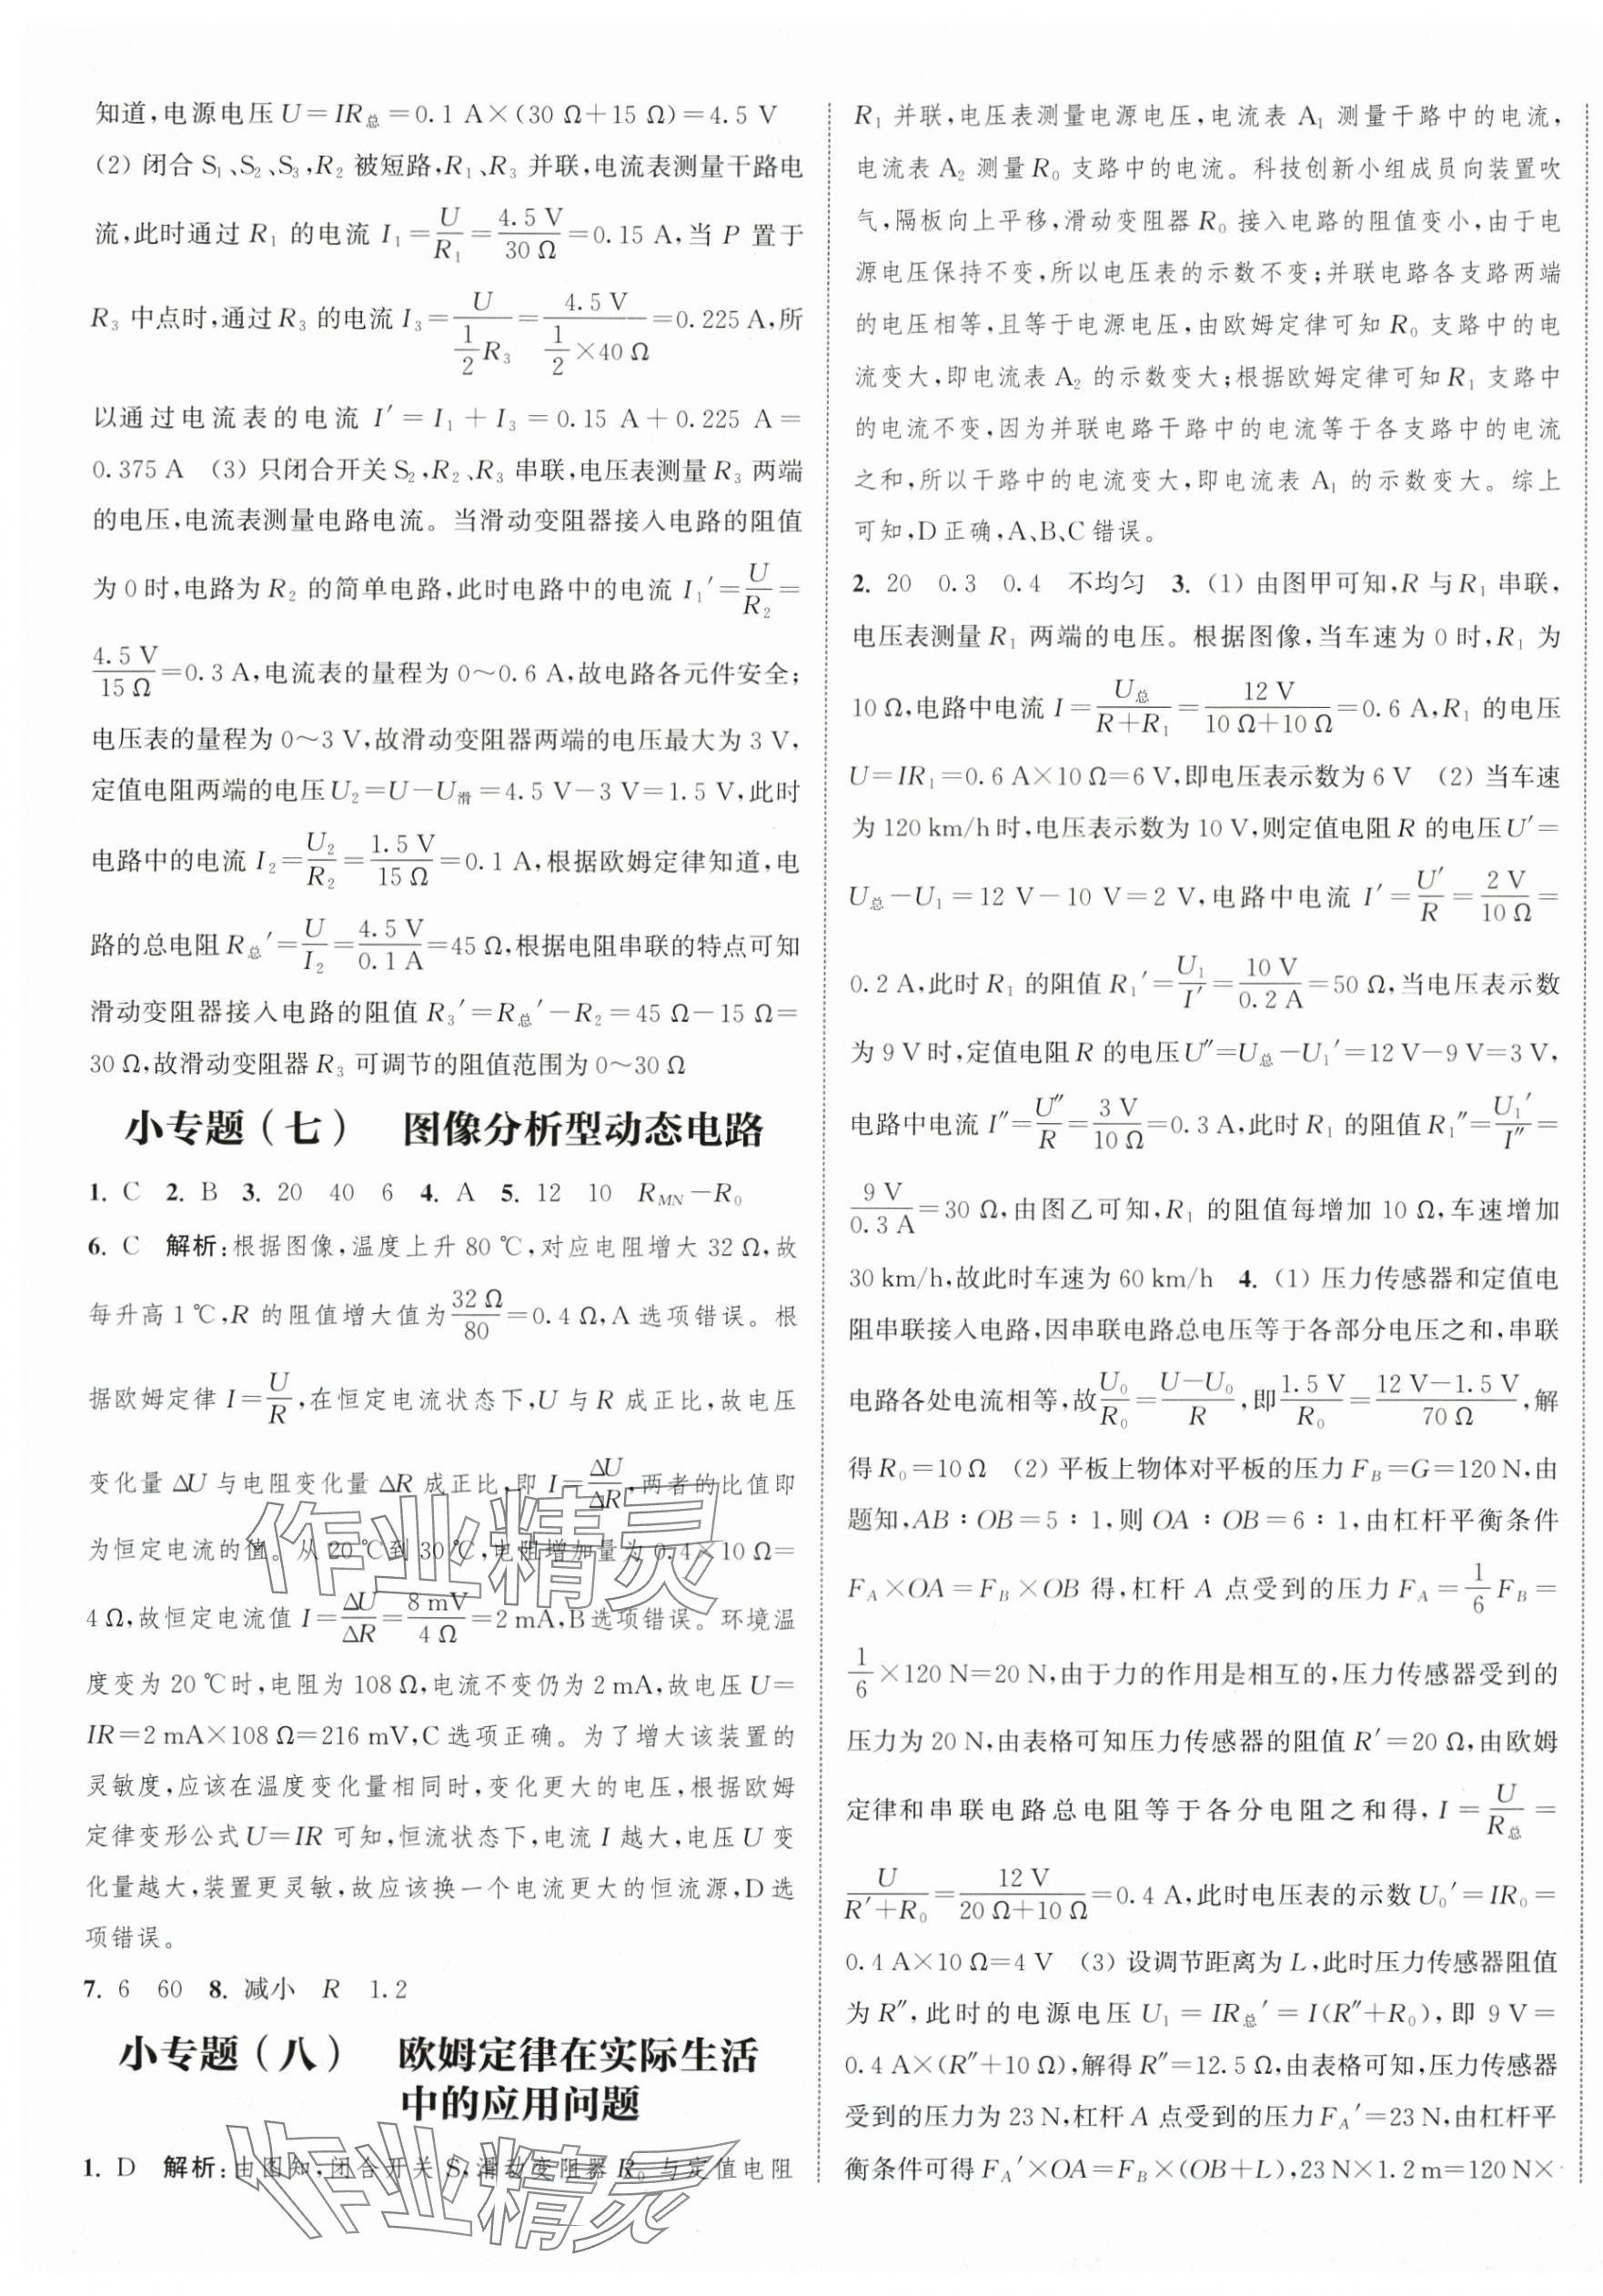 知道,电源电压 U＝IR总＝0.1 A×(30 Ω＋15 Ω)＝4.5 V
(2) 闭合 S₁、S₂、S₃,R₂ 被短路,R₁、R₃ 并联,电流表测量干路电
流,此时通过 R₁ 的电流 I₁＝U/R₁＝4.5 V/30 Ω＝0.15 A,当 P 置于
R₃ 中点时,通过 R₃ 的电流 I₃＝U/(1/2 R₃)＝4.5 V/(1/2×40 Ω)＝0.225 A,所
以通过电流表的电流 I′＝I₁＋I₃＝0.15 A＋0.225 A＝
0.375 A (3) 只闭合开关 S₂,R₂、R₃ 串联,电压表测量 R₃ 两端
的电压,电流表测量电路电流。当滑动变阻器接入电路的阻值
为 0 时,电路为 R₂ 的简单电路,此时电路中的电流 I₁′＝U/R₂＝
4.5 V/15 Ω＝0.3 A,电流表的量程为 0～0.6 A,故电路各元件安全;
电压表的量程为 0～3 V,故滑动变阻器两端的电压最大为 3 V,
定值电阻两端的电压 U₂＝U－U滑＝4.5 V－3 V＝1.5 V,此时
电路中的电流 I₂＝U₂/R₂＝1.5 V/15 Ω＝0.1 A,根据欧姆定律知道,电
路的总电阻 R总′＝U/I₂＝4.5 V/0.1 A＝45 Ω,根据电阻串联的特点可知
滑动变阻器接入电路的阻值 R₃′＝R总′－R₂＝45 Ω－15 Ω＝
30 Ω,故滑动变阻器 R₃ 可调节的阻值范围为 0～30 Ω
小专题（七） 图像分析型动态电路
1. C 2. B 3. 20 40 6 4. A 5. 12 10 R_MN－R₀
6. C 解析:根据图像,温度上升 80 ℃,对应电阻增大 32 Ω,故
每升高 1 ℃,R 的阻值增大值为 32 Ω/80＝0.4 Ω,A 选项错误。根
据欧姆定律 I＝U/R,在恒定电流状态下,U 与 R 成正比,故电压
变化量 ΔU 与电阻变化量 ΔR 成正比,即 I＝ΔU/ΔR,两者的比值即
为恒定电流的值。从 20 ℃到 30 ℃,电阻增加量为 0.4×10 Ω＝
4 Ω,故恒定电流值 I＝ΔU/ΔR＝8 mV/4 Ω＝2 mA,B 选项错误。环境温
度变为 20 ℃时,电阻为 108 Ω,电流不变仍为 2 mA,故电压 U＝
IR＝2 mA×108 Ω＝216 mV,C 选项正确。为了增大该装置的
灵敏度,应该在温度变化量相同时,变化更大的电压,根据欧姆
定律变形公式 U＝IR 可知,恒流状态下,电流 I 越大,电压 U 变
化量越大,装置更灵敏,故应该换一个电流更大的恒流源,D 选
项错误。
7. 6 60 8. 减小 R 1.2
小专题（八） 欧姆定律在实际生活
中的应用问题
1. D 解析:由图知,闭合开关 S,滑动变阻器 R₀ 与定值电阻
R₁ 并联,电压表测量电源电压,电流表 A₁ 测量干路中的电流,
电流表 A₂ 测量 R₀ 支路中的电流。科技创新小组成员向装置吹
气,隔板向上平移,滑动变阻器 R₀ 接入电路的阻值变小,由于电
源电压保持不变,所以电压表的示数不变;并联电路各支路两端
的电压相等,且等于电源电压,由欧姆定律可知 R₀ 支路中的电
流变大,即电流表 A₂ 的示数变大;根据欧姆定律可知 R₁ 支路中
的电流不变,因为并联电路干路中的电流等于各支路中的电流
之和,所以干路中的电流变大,即电流表 A₁ 的示数变大。综上
可知,D 正确,A、B、C 错误。
2. 20 0.3 0.4 不均匀 3. (1) 由图甲可知,R 与 R₁ 串联,
电压表测量 R₁ 两端的电压。根据图像,当车速为 0 时,R₁ 为
10 Ω,电路中电流 I＝U总/(R＋R₁)＝12 V/(10 Ω＋10 Ω)＝0.6 A,R₁ 的电压
U＝IR₁＝0.6 A×10 Ω＝6 V,即电压表示数为 6 V (2) 当车速
为 120 km/h 时,电压表示数为 10 V,则定值电阻 R 的电压 U′＝
U总－U₁＝12 V－10 V＝2 V,电路中电流 I′＝U′/R＝2 V/10 Ω＝
0.2 A,此时 R₁ 的阻值 R₁′＝U₁/I′＝10 V/0.2 A＝50 Ω,当电压表示数
为 9 V 时,定值电阻 R 的电压 U″＝U总－U₁′＝12 V－9 V＝3 V,
电路中电流 I″＝U″/R＝3 V/10 Ω＝0.3 A,此时 R₁ 的阻值 R₁″＝U₁′/I″＝
9 V/0.3 A＝30 Ω,由图乙可知,R₁ 的阻值每增加 10 Ω,车速增加
30 km/h,故此时车速为 60 km/h 4. (1) 压力传感器和定值电
阻串联接入电路,因串联电路总电压等于各部分电压之和,串联
电路各处电流相等,故 U₀/R₀＝(U－U₀)/R,即 1.5 V/R₀＝(12 V－1.5 V)/70 Ω,解
得 R₀＝10 Ω (2) 平板上物体对平板的压力 F_B＝G＝120 N,由
题知,AB∶OB＝5∶1,则 OA∶OB＝6∶1,由杠杆平衡条件
F_A×OA＝F_B×OB 得,杠杆 A 点受到的压力 F_A＝1/6 F_B＝
1/6×120 N＝20 N,由于力的作用是相互的,压力传感器受到的
压力为 20 N,由表格可知压力传感器的阻值 R′＝20 Ω,由欧姆
定律和串联电路总电阻等于各分电阻之和得,I＝U/R总＝
U/(R′＋R₀)＝12 V/(20 Ω＋10 Ω)＝0.4 A,此时电压表的示数 U₀′＝IR₀＝
0.4 A×10 Ω＝4 V (3) 设调节距离为 L,此时压力传感器阻值
为 R″,此时的电源电压 U₁＝IR总′＝I(R″＋R₀),即 9 V＝
0.4 A×(R″＋10 Ω),解得 R″＝12.5 Ω,由表格可知,压力传感器
受到的压力为 23 N,杠杆 A 点受到的压力 F_A′＝23 N,由杠杆平
衡条件可得 F_A′×OA＝F_B×(OB＋L),23 N×1.2 m＝120 N×
作业精灵
作业精灵